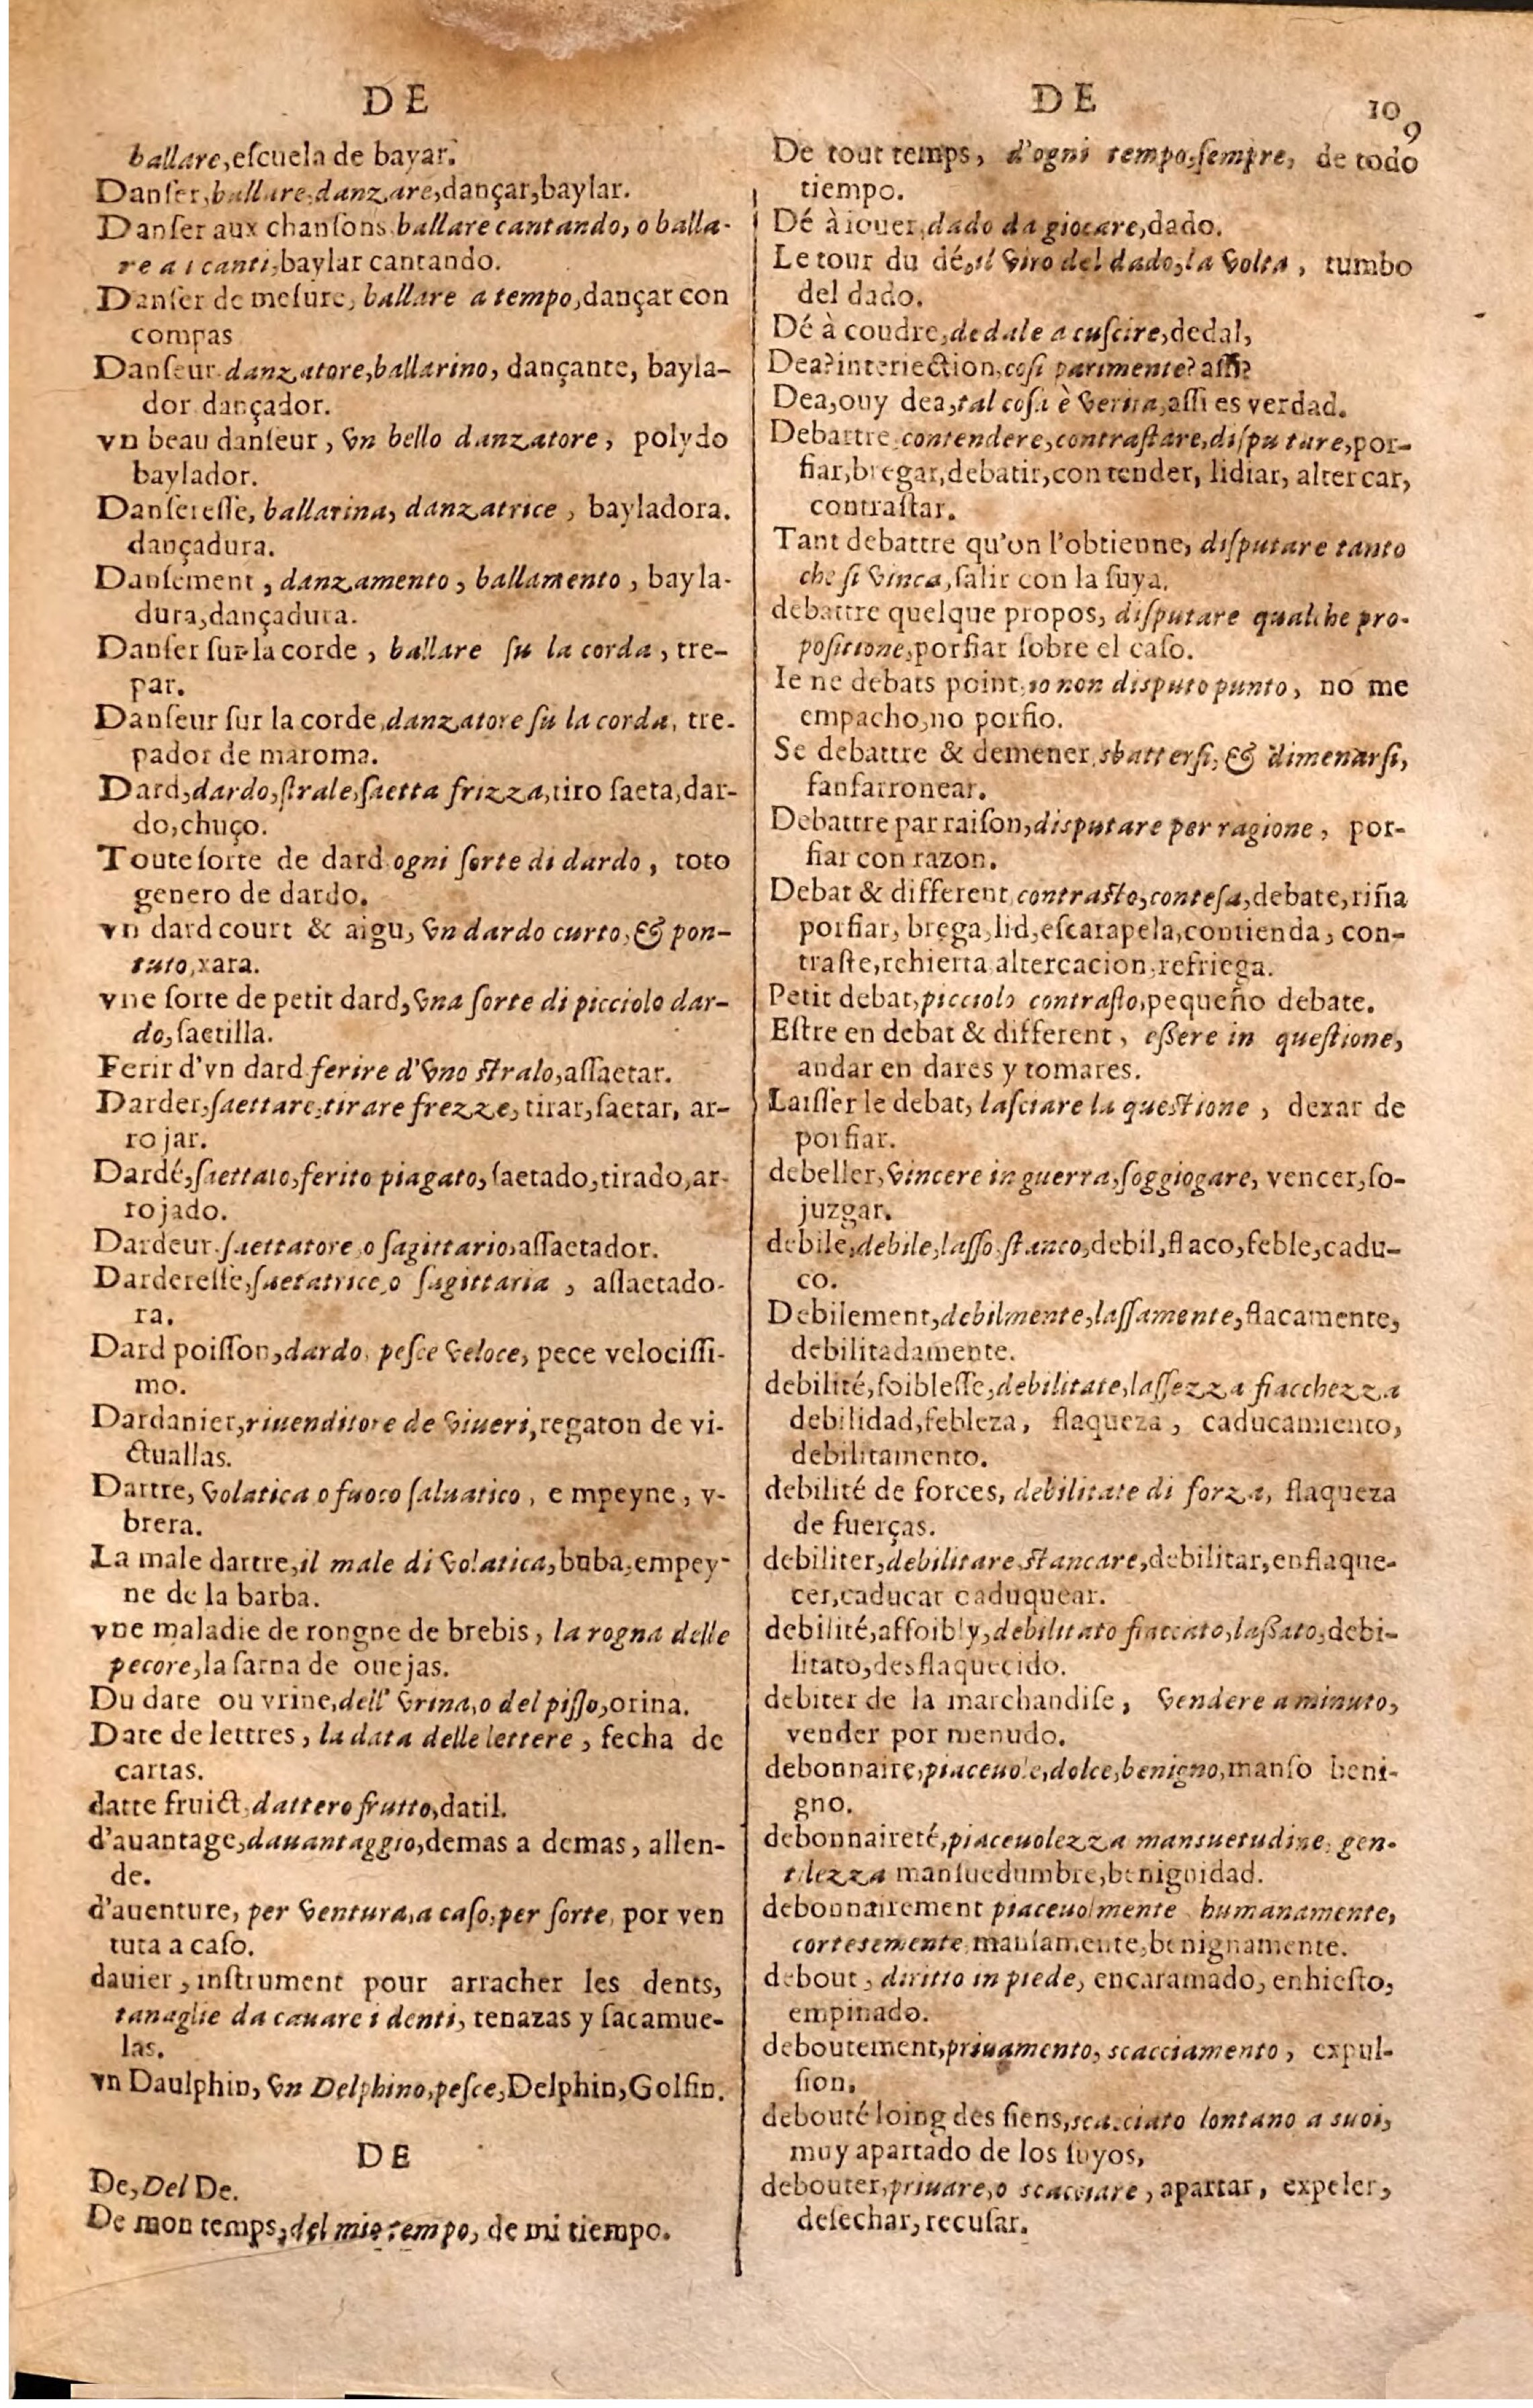 DE
ballare, eſcuela de bayar.
Danſer, ballare, danzare, dançar, baylar.
Danſer aux chanſons ballare cantando, o balla-
re a i canti, baylar cantando.
Danſer de meſure, ballare a tempo, dançar con
compas
Danſeur danzatore, ballarino, dançante, bayla-
dor dançador.
vn beau danſeur, vn bello danzatore, polydo
baylador.
Danſereſſe, ballarina, danzatrice, bayladora.
dançadura.
Danſement, danzamento, ballamento, bayla-
dura, dançadura.
Danſer ſur la corde, ballare ſu la corda, tre-
par.
Danſeur ſur la corde, danzatore ſu la corda, tre-
pador de maroma.
Dard, dardo, ſtrale, ſaetta frizza, tiro ſaeta, dar-
do, chuço.
Toute ſorte de dard ogni ſorte di dardo, toto
genero de dardo.
vn dard court & aigu, vn dardo curto, & pon-
tuto, xara.
vne ſorte de petit dard, vna ſorte di picciolo dar-
do, ſaetilla.
Ferir d'vn dard ferire d'vno ſtralo, aſſaetar.
Darder, ſaettare, tirare frezze, tirar, ſaetar, ar-
rojar.
Dardé, ſaettato, ferito piagato, ſaetado, tirado, ar-
rojado.
Dardeur ſaettatore o ſagittario, aſſaetador.
Dardereſſe, ſaetatrice, o ſagittaria, aſſaetado-
ra.
Dard poiſſon, dardo, peſce veloce, pece velociſſi-
mo.
Dardanier, riuenditore de viueri, regaton de vi-
ctuallas.
Dartre, volatica o fuoco ſaluatico, e mpeyne, v-
brera.
La male dartre, il male di volatica, buba, empey-
ne de la barba.
vne maladie de rongne de brebis, la rogna delle
pecore, la ſarna de ouejas.
Du date ou vrine, dell' vrina, o del piſſo, orina.
Date de lettres, la data delle lettere, fecha de
cartas.
datte fruict, dattero frutto, datil.
d'auantage, dauantaggio, demas a demas, allen-
de.
d'auenture, per ventura, a caſo, per ſorte, por ven
tura a caſo.
dauier, inſtrument pour arracher les dents,
tanaglie da cauare i denti, tenazas y ſacamue-
las.
vn Daulphin, vn Delphino, peſce, Delphin, Golfin.
DE
De, Del De.
De mon temps, del mio tempo, de mi tiempo.
DE 109
De tout temps, d'ogni tempo, ſempre, de todo
tiempo.
Dé à iouer, dado da giocare, dado.
Le tour du dé, il viro del dado, la volta, tumbo
del dado.
Dé à coudre, dedale a cuſcire, dedal,
Dea? interiection, coſi parimente? aſſi?
Dea, ouy dea, tal coſa è verita, aſſi es verdad.
Debattre contendere, contraſtare, diſputare, por-
fiar, bregar, debatir, contender, lidiar, altercar,
contraſtar.
Tant debattre qu'on l'obtienne, diſputare tanto
che ſi vinca, ſalir con la ſuya.
debattre quelque propos, diſputare qualche pro-
poſitione, porfiar ſobre el caſo.
Ie ne debats point, io non disputo punto, no me
empacho, no porfio.
Se debattre & demener, sbatterſi, & dimenarſi,
fanfarronear.
Debattre par raiſon, disputare per ragione, por-
fiar con razon.
Debat & different, contraſto, conteſa, debate, riña
porfiar, brega, lid, eſcarapela, contienda, con-
traſte, rehierta altercacion, refriega.
Petit debat, picciolo contraſto, pequeño debate.
Eſtre en debat & different, eßere in queſtione,
andar en dares y tomares.
Laiſſer le debat, laſciare la queſtione, dexar de
porfiar.
debeller, vincere in guerra, ſoggiogare, vencer, ſo-
juzgar.
debile, debile, laſſo, ſtanco, debil, flaco, feble, cadu-
co.
Debilement, debilmente, laſſamente, flacamente,
debilitadamente.
debilité, foibleſſe, debilitate, laſſezza fiacchezza
debilidad, febleza, flaqueza, caducamiento,
debilitamento.
debilité de forces, debilitate di forza, flaqueza
de fuerças.
debiliter, debilitare ſtancare, debilitar, enflaque-
cer, caducar caduquear.
debilité, affoibly, debilitato fiaccato, laßato, debi-
litato, desflaquecido.
debiter de la marchandiſe, vendere a minuto,
vender por menudo.
debonnaire, piaceuole, dolce, benigno, manſo beni-
gno.
debonnaireté, piaceuolezza mansuetudine, gen-
tilezza manſuedumbre, benignidad.
debonnairement piaceuolmente humanamente,
cortesemente, manſamente, benignamente.
debout, diritto in piede, encaramado, enhieſto,
empinado.
deboutement, priuamento, scacciamento, expul-
ſion,
debouté loing des ſiens, scacciato lontano a suoi,
muy apartado de los ſuyos,
debouter, priuare, o scacciare, apartar, expeler,
deſechar, recuſar.